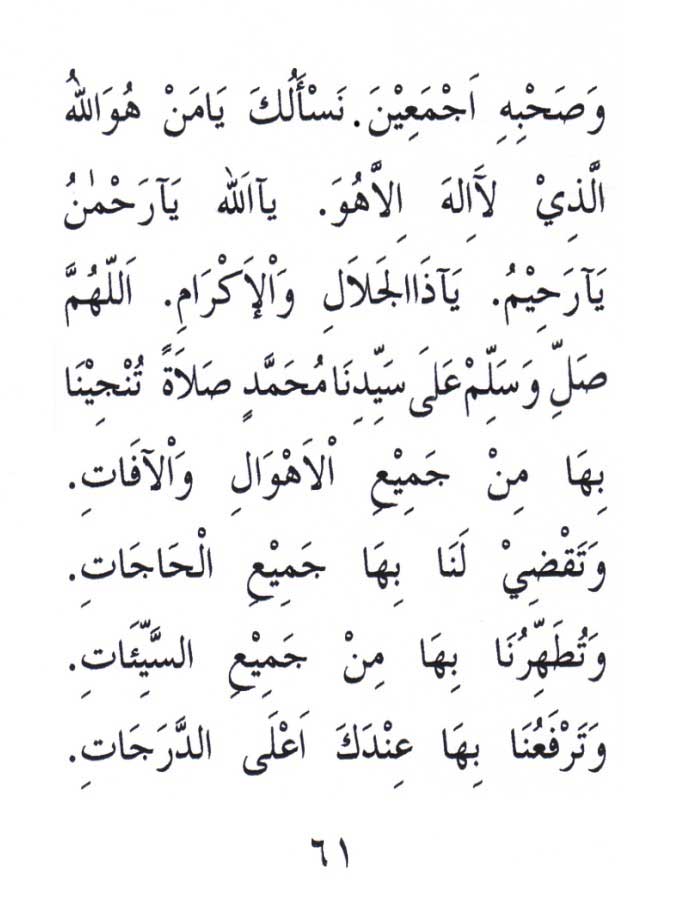 وَصَحْبِهِ اَجْمَعِيْنَ. نَسْأَلُكَ يَامَنْ هُوَاللهُ
الَّذِيْ لَآاِلهَ اِلاَّهُوَ. يآاَلله يَآرَحْمٰنُ
يَآرَحِيْمُ. يَآذَاالجَلاَلِ وَاْلإَكْرَامِ. اَللّهُمَّ
صَلِّ وَسَلِّمْ عَلَى سَيِّدِنَامُحَمَّدٍ صَلاَةً تُنْجِيْنَا
بِهَا مِنْ جَمِيْعِ اْلاَهْوَالِ وَاْلآفَاتِ.
وَتَقْضِيْ لَنَا بِهَا جَمِيْعِ الْحَاجَاتِ.
وَتُطَهِّرُنَا بِهَا مِنْ جَمِيْعِ السَّيِّئَاتِ.
وَتَرْفَعُنَا بِهَا عِنْدَكَ اَعْلَى الدَّرَجَاتِ.
٦١